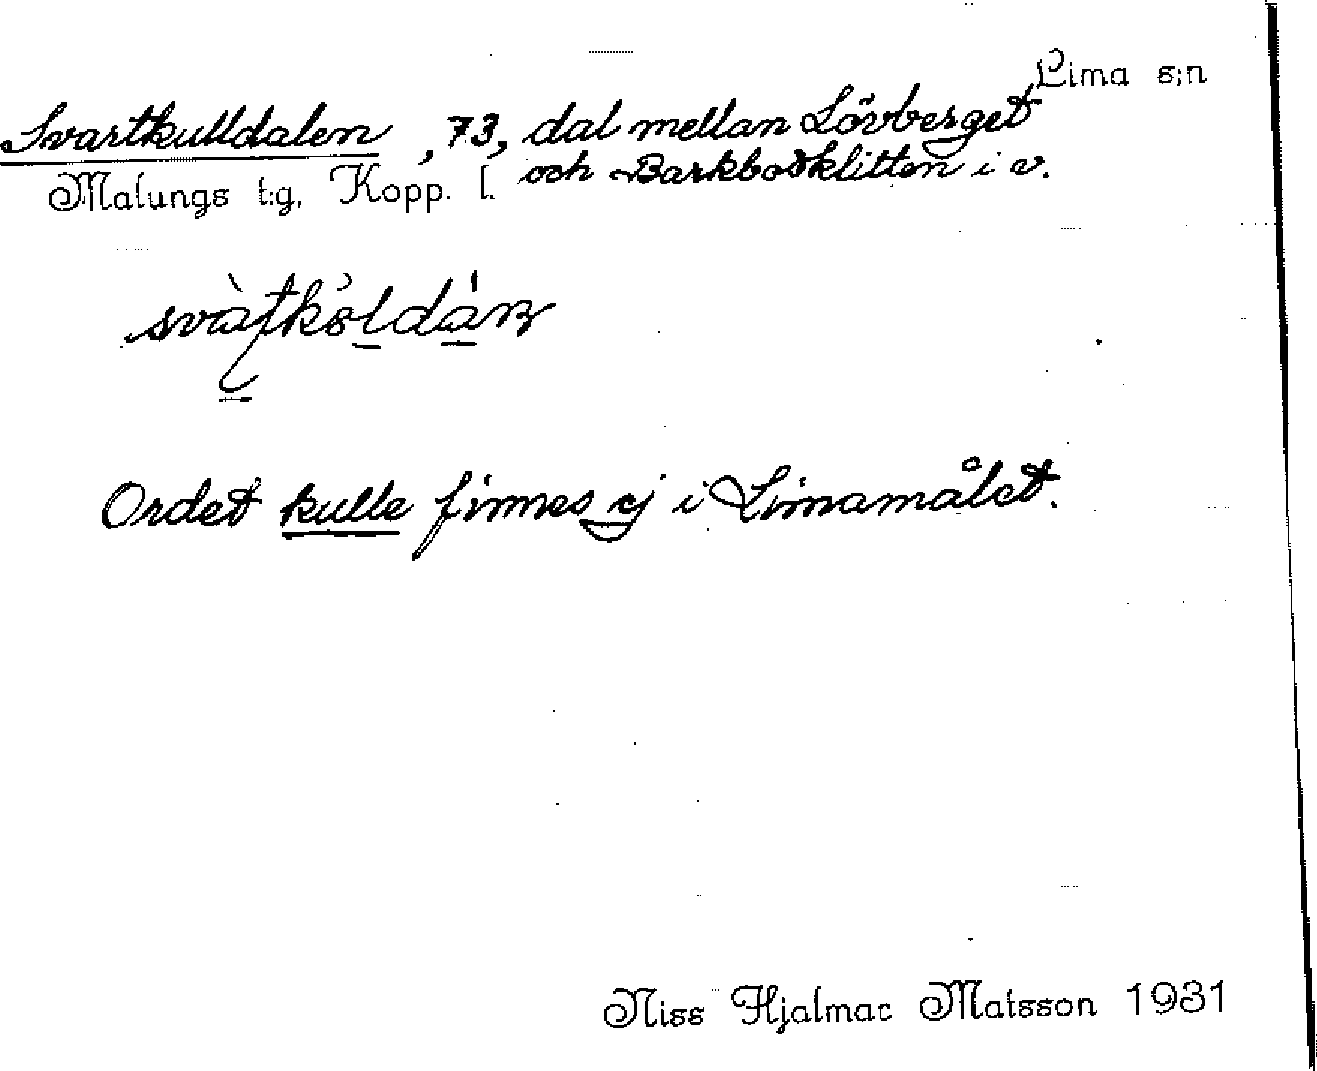 Lima s:n
Svartkulldalen, 73, dal mellan Lövberget
och Barkbodklitten i v.
Malungs t:g, Kopp. l.
Ordet kulle finnes ej i Limamålet.
Niss Hjalmar Matsson 1931